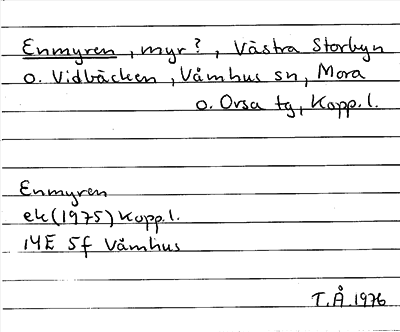 Enmyren, myr?, Västra Storbyn
o. Vidbäcken, Våmhus sn, Mora
o. Orsa tg, Kopp.l.
Enmyren
ek(1975) Kopp.l.
14E 5f Våmhus
T.Å.1976